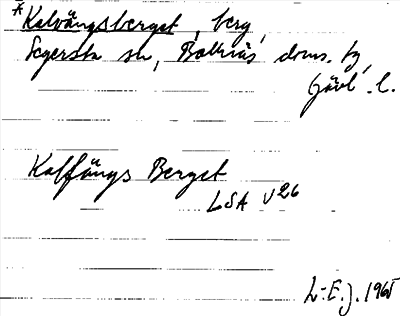 *Kalvängsberget, berg,
Segersta sn, Bollnäs doms. tg,
Gävl. l.
Kalfängs Berget
LSA V26
L-E. J. 1965